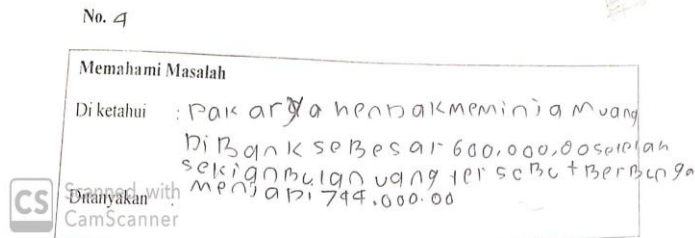 No. 4
Memahami Masalah
Di ketahui : Pak arya hendak meminjam uang
Di Bank seBesar 600,000,00 setelah
sekian Bulan uang terseBut BerBunga
Ditanyakan : menjaDi 744.000.00
CS Scanned with
CamScanner